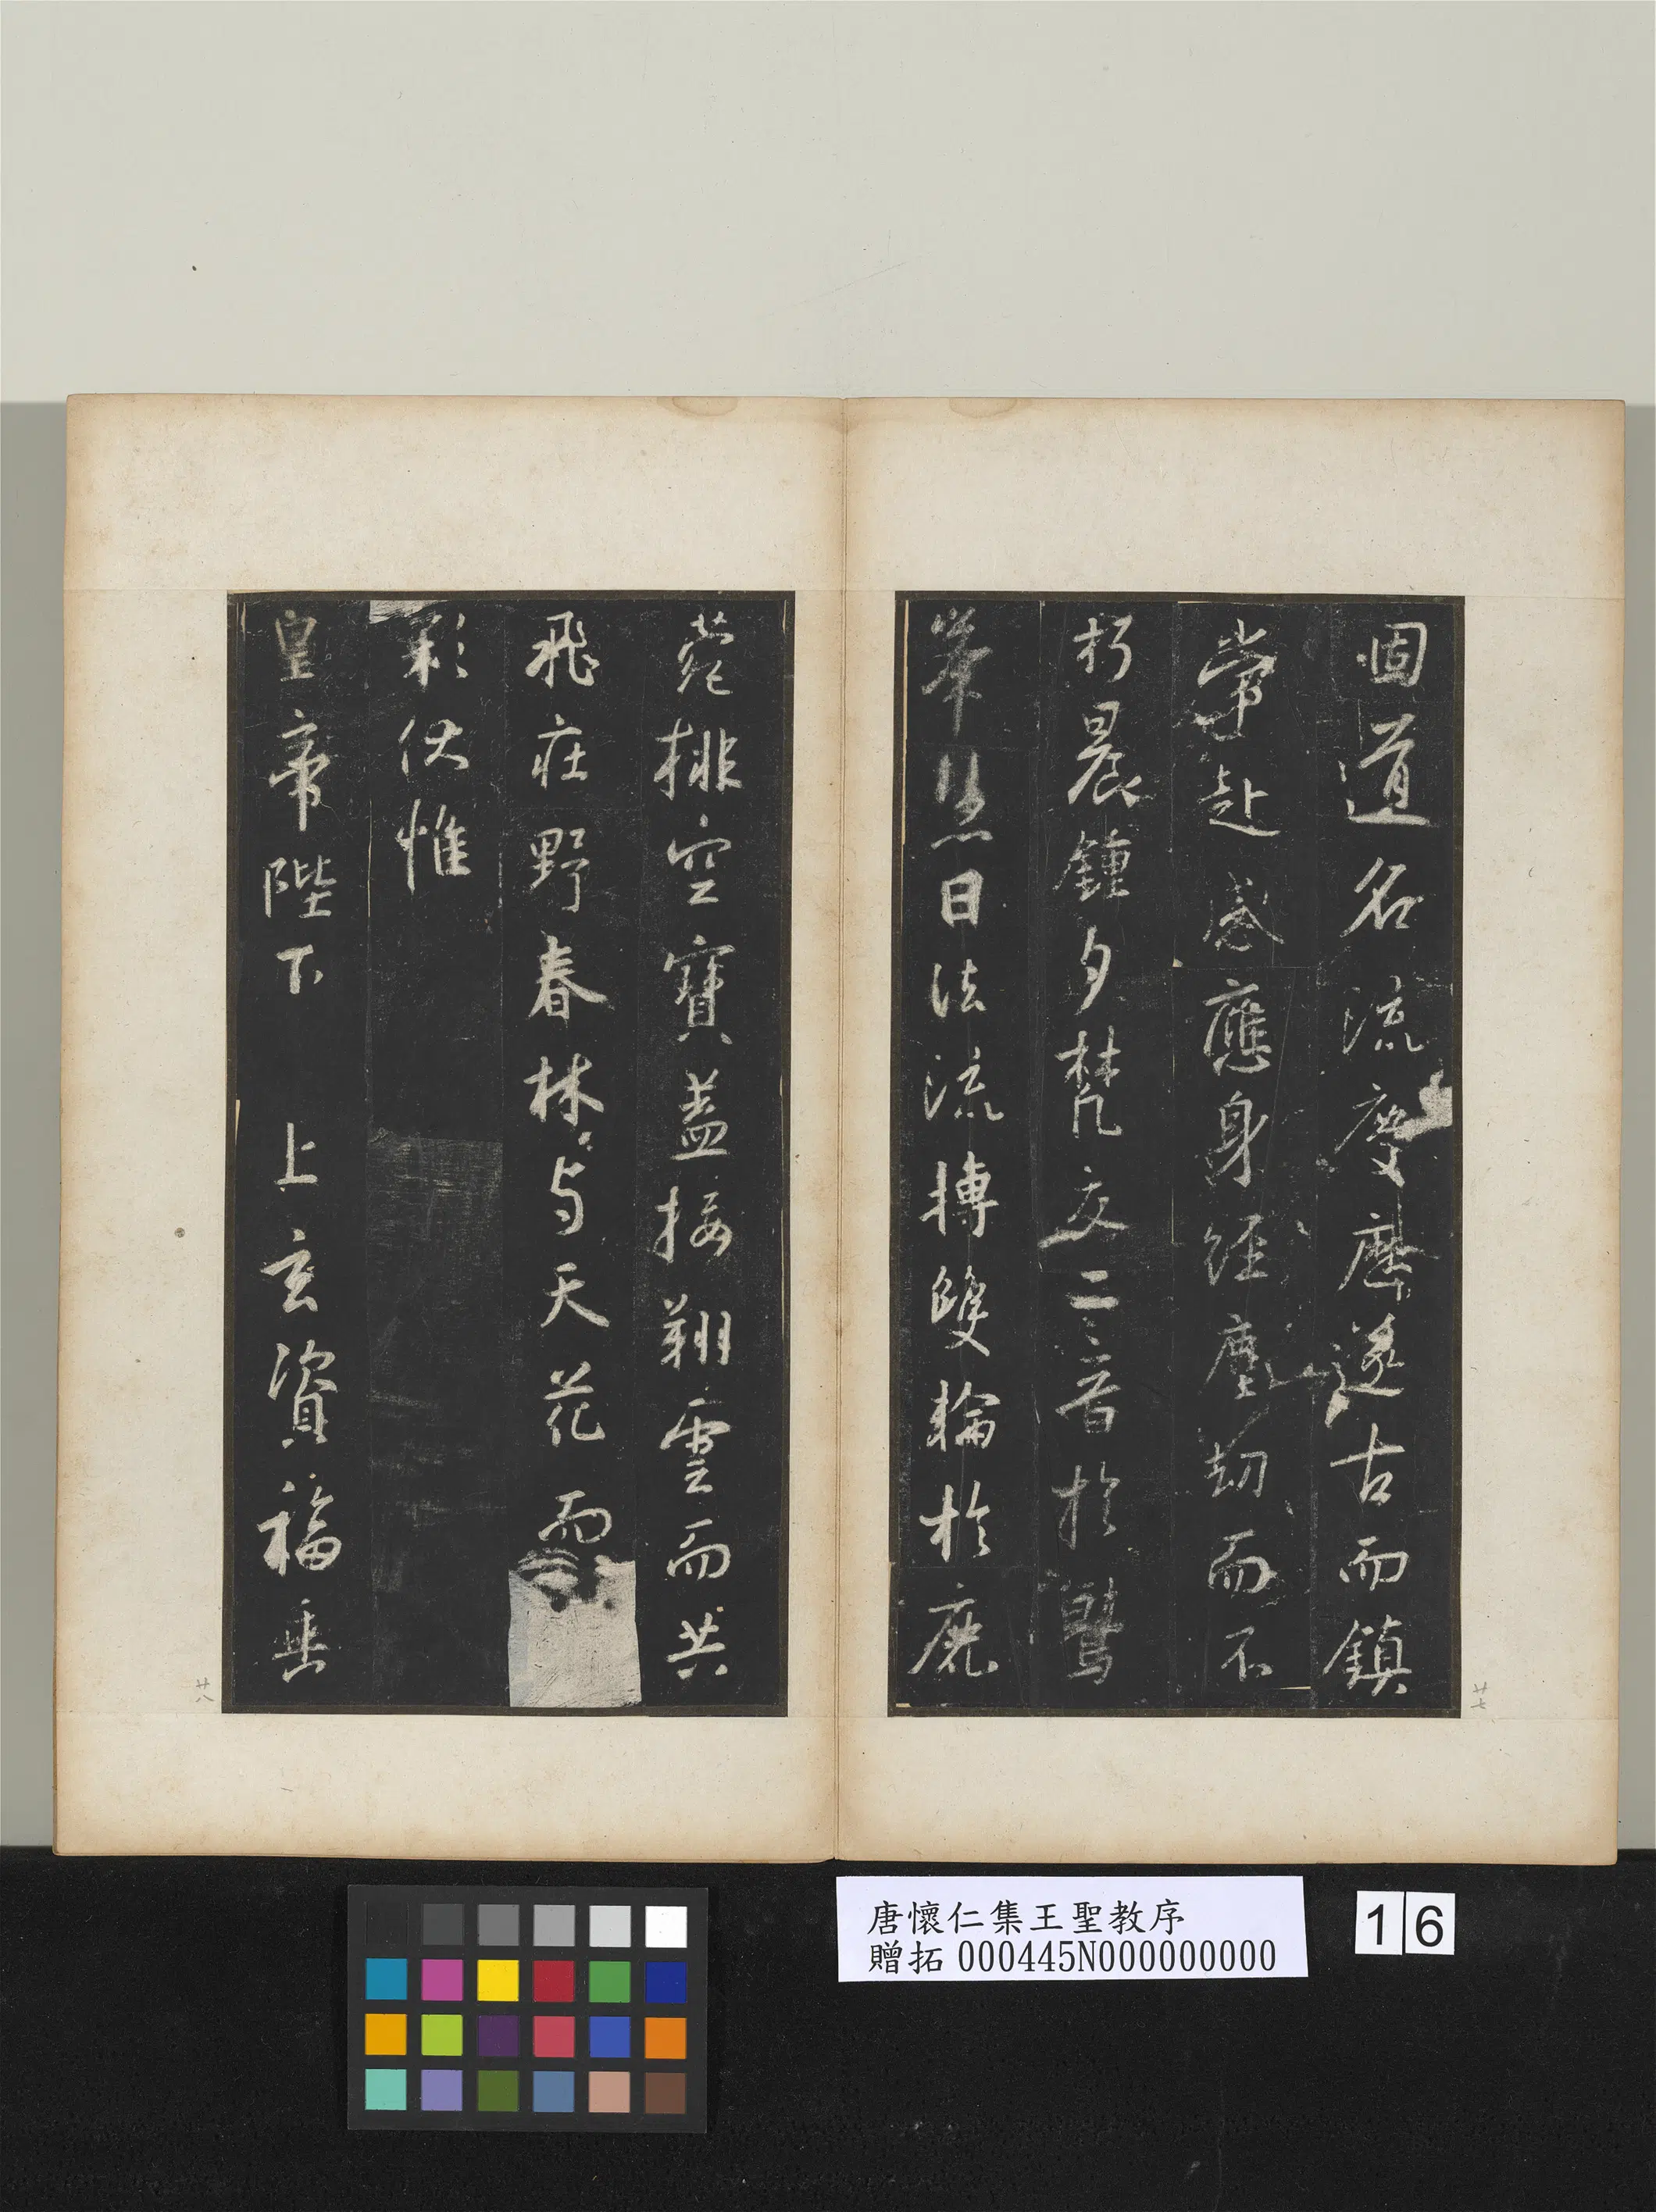 固道名流慶歷遂古而鎮
常赴感應身經塵劫而不
朽晨鍾夕梵交二音於鷲
峯慧日法流轉雙輪於鹿
廿七
菀排空寶蓋接翔雲而共
飛莊野春林与天花而
彩伏惟
皇帝陛下 上玄資福垂
廿八
唐懷仁集王聖教序
贈拓 000445N000000000
16